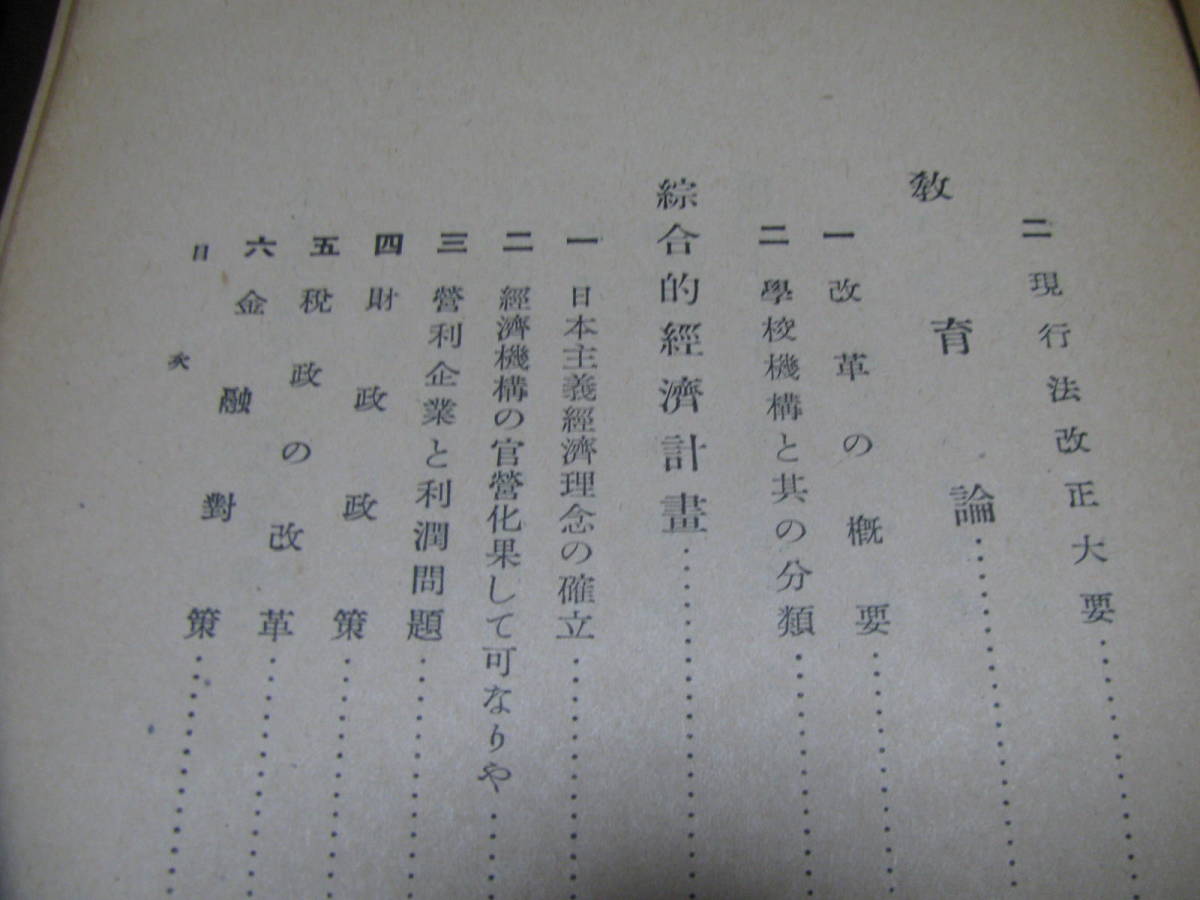 二 現行法改正大要
敎育論
一 改革の槪要
二 學校機構と其の分類
綜合的經濟計畫
一 日本主義經濟理念の確立
二 經濟機構の官營化果して可なりや
三 營利企業と利潤問題
四 財政政策
五 稅政の改革
六 金融對策
目次